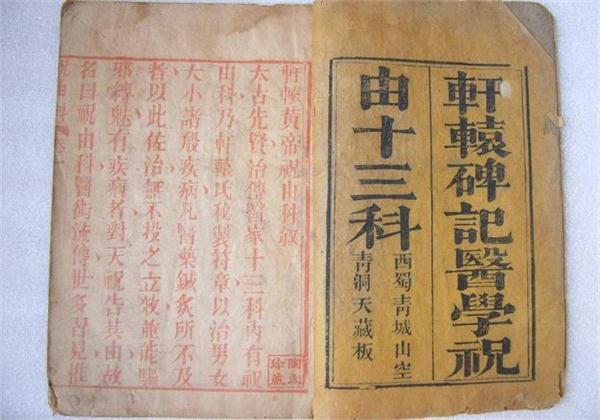 軒轅碑記醫學祝
由十三科
西蜀青城山空
青洞天藏板
軒轅黃帝祝由科叙
太古先賢治傳醫家十三科內有祝
由科乃軒轅氏秘製符章以治男女
大小諸般疾病凡醫藥鍼炙所不及
者以此佐治無不投之立效並能驅
邪縛魅有疾病者對天祝告其由故
名曰祝由科醫術流傳世多罕見惟
祝由科 卷一
珍藏